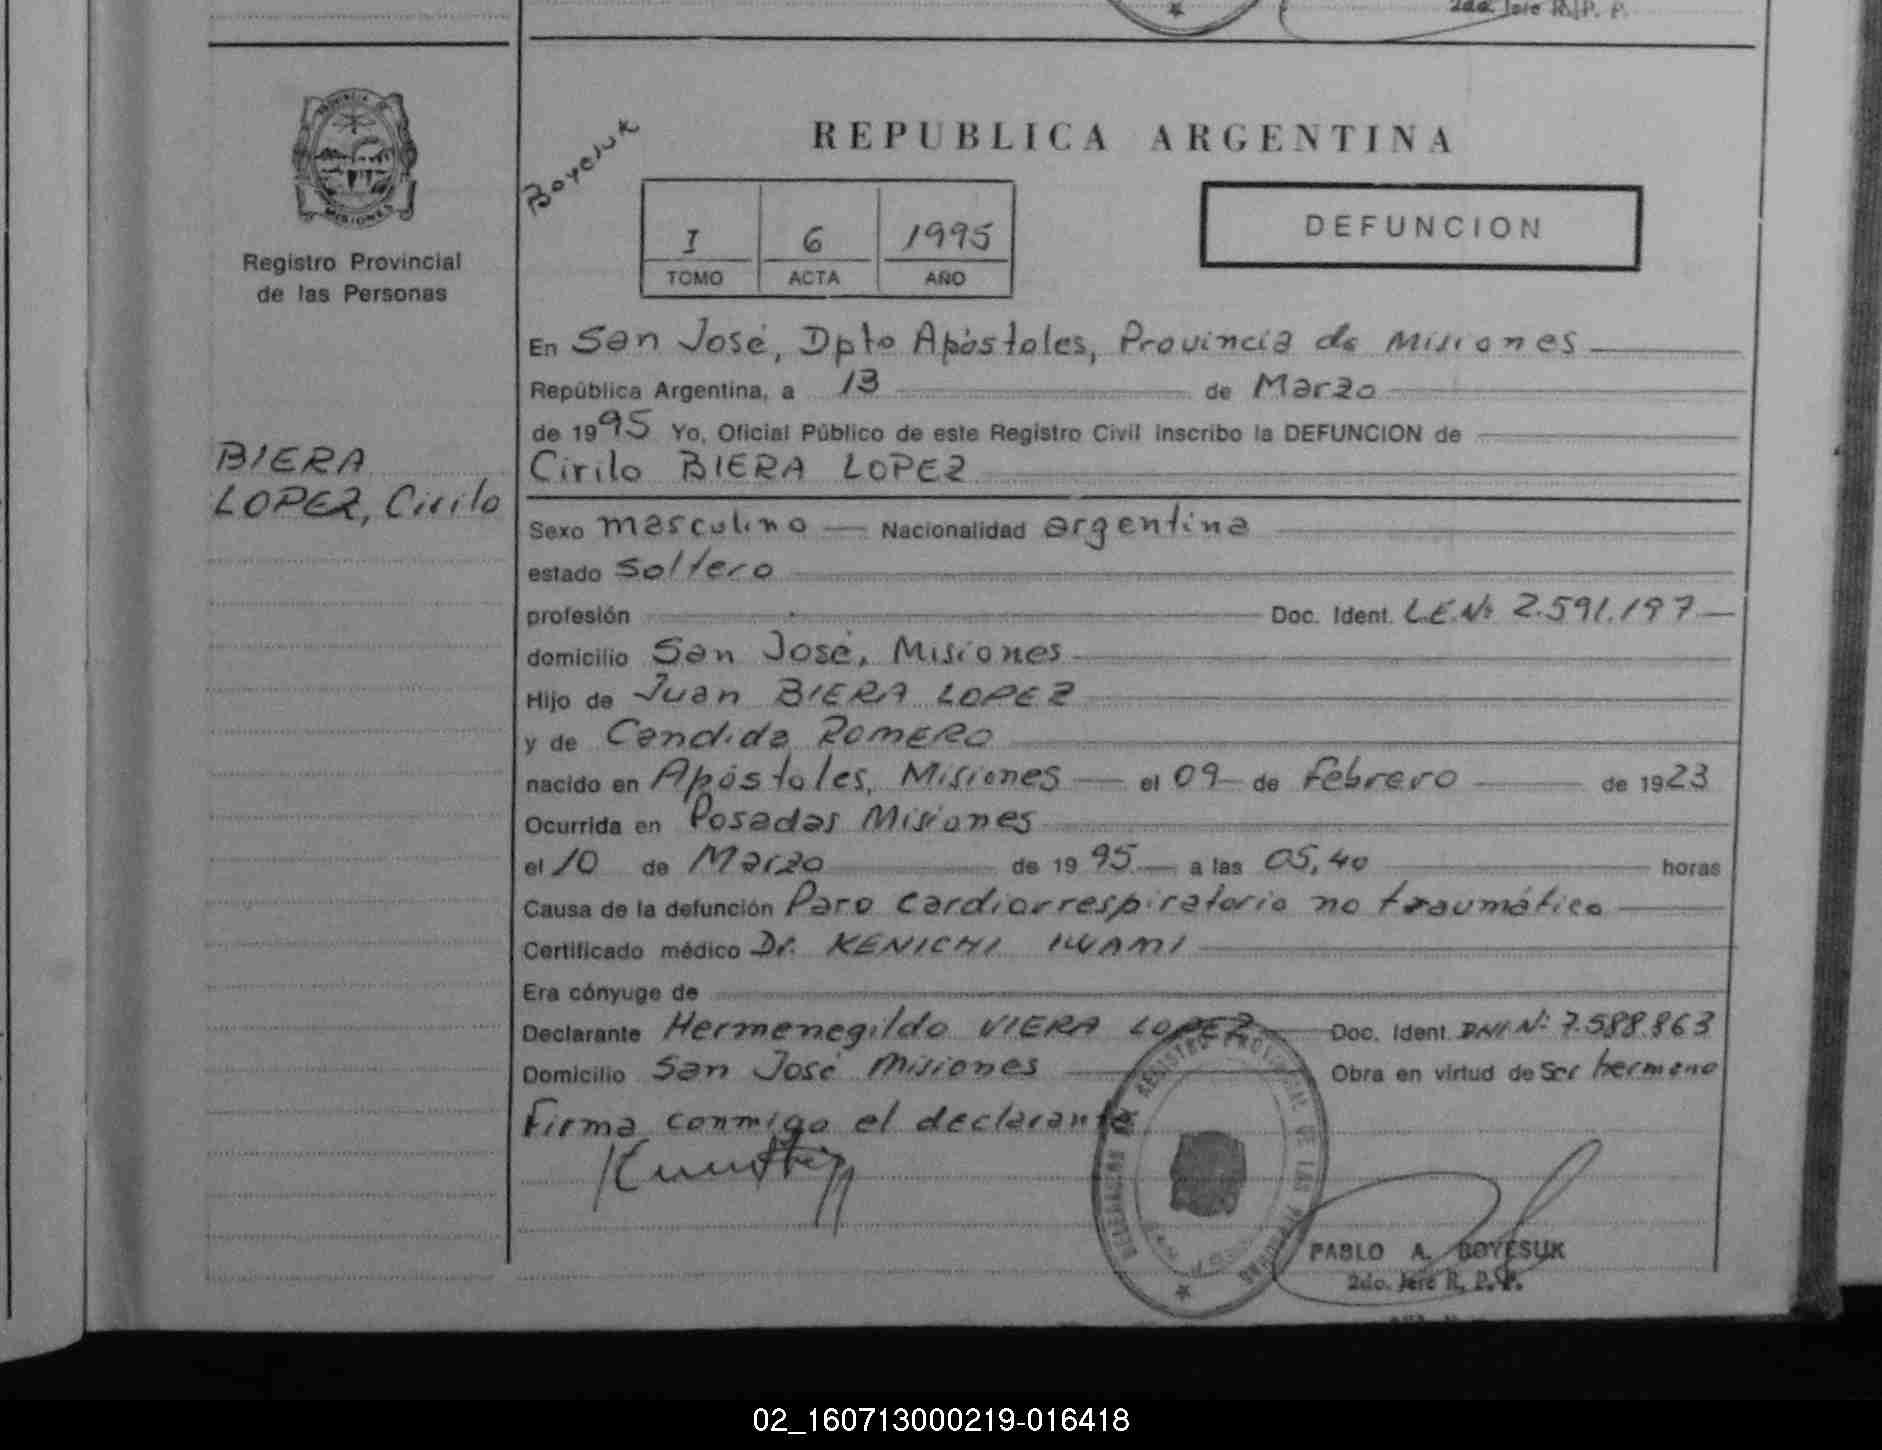 2do. Jefe R. P. P.
PROVINCIA DE
MISIONES
Registro Provincial
de las Personas
BIERA
LOPEZ, Cirilo
Boyesuk
REPUBLICA ARGENTINA
I 6 1995
TOMO ACTA AÑO
DEFUNCION
En San José, Dpto Apóstoles, Provincia de Misiones
República Argentina, a 13 de Marzo
de 1995 Yo, Oficial Público de este Registro Civil inscribo la DEFUNCION de
Cirilo BIERA LOPEZ
Sexo masculino Nacionalidad argentina
estado soltero
profesión Doc. Ident. L.E.Nº 2.591.197
domicilio San José, Misiones
Hijo de Juan BIERA LOPEZ
y de Candida ROMERO
nacido en Apóstoles, Misiones el 09 de Febrero de 1923
Ocurrida en Posadas Misiones
el 10 de Marzo de 1995 a las 05,40 horas
Causa de la defunción Paro cardiorrespiratorio no traumático
Certificado médico Dr. KENICHI IWAMI
Era cónyuge de
Declarante Hermenegildo VIERA LOPEZ Doc. Ident. DNI Nº 7.588.863
Domicilio San José Misiones Obra en virtud de Ser hermano
Firma conmigo el declarante
REGISTRO PROVINCIAL DE LAS PERSONAS
SAN JOSE
PABLO A. BOYESUK
2do. Jefe R. P. P.
02_160713000219-016418